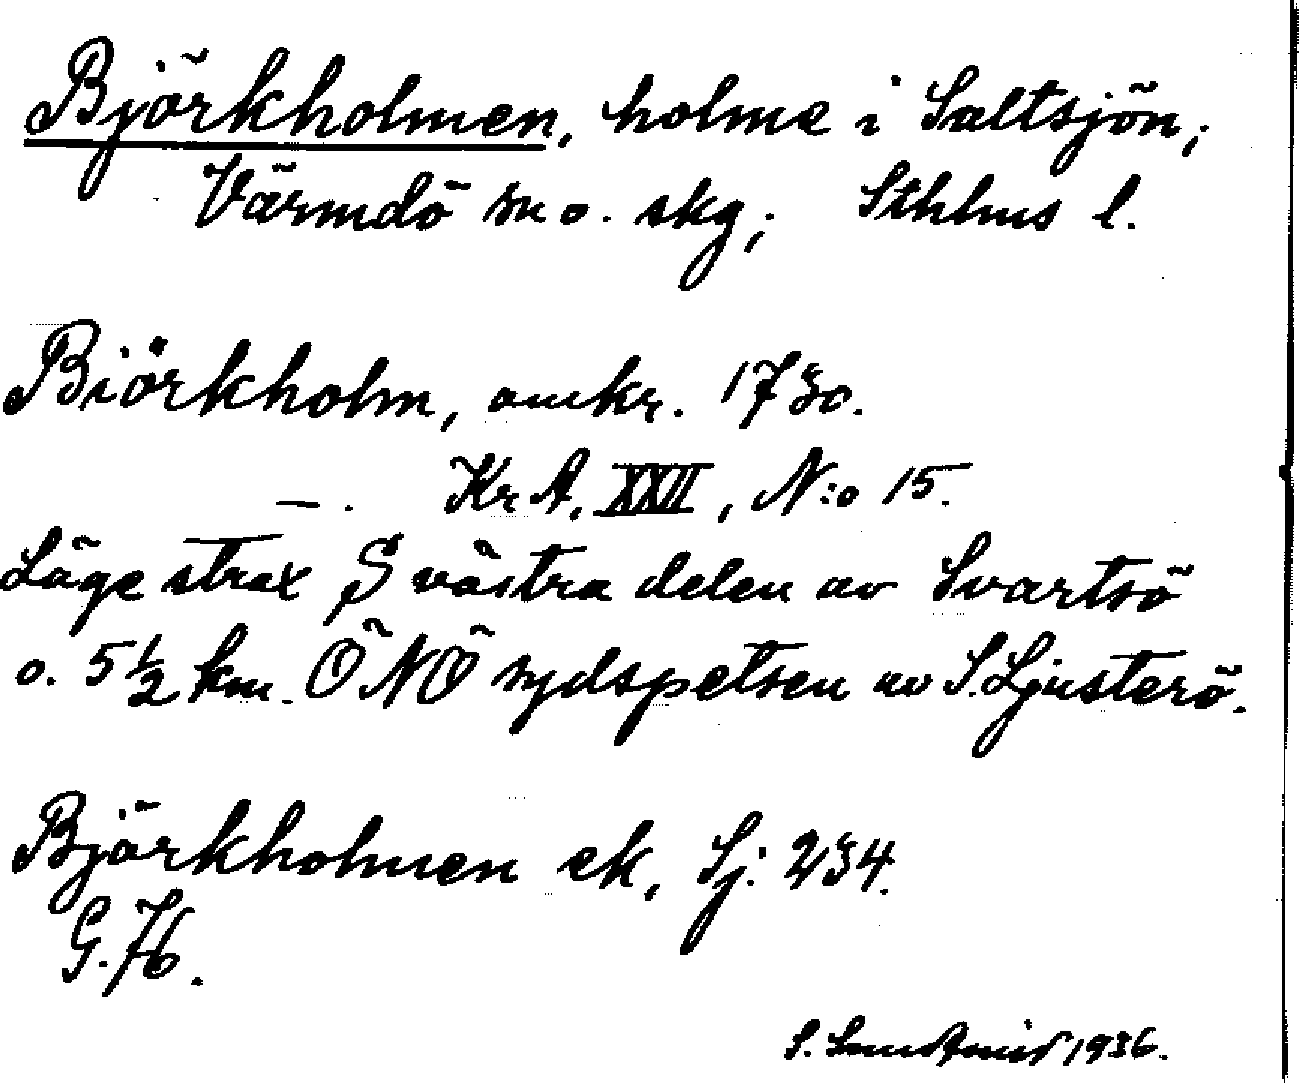 Björkholmen, holme i Saltsjön,
Värmdö sn o. skg; Sthlms l.
Biörkholm, omkr. 1730.
— . Kr. A. XXII, N:o 15.
Läge strax S västra delen av Svartsö
o. 5 1/2 km. ÖNÖ sydspetsen av S. Ljusterö.
Björkholmen ek, Sj: 234.
G. 76.
S. 1936.